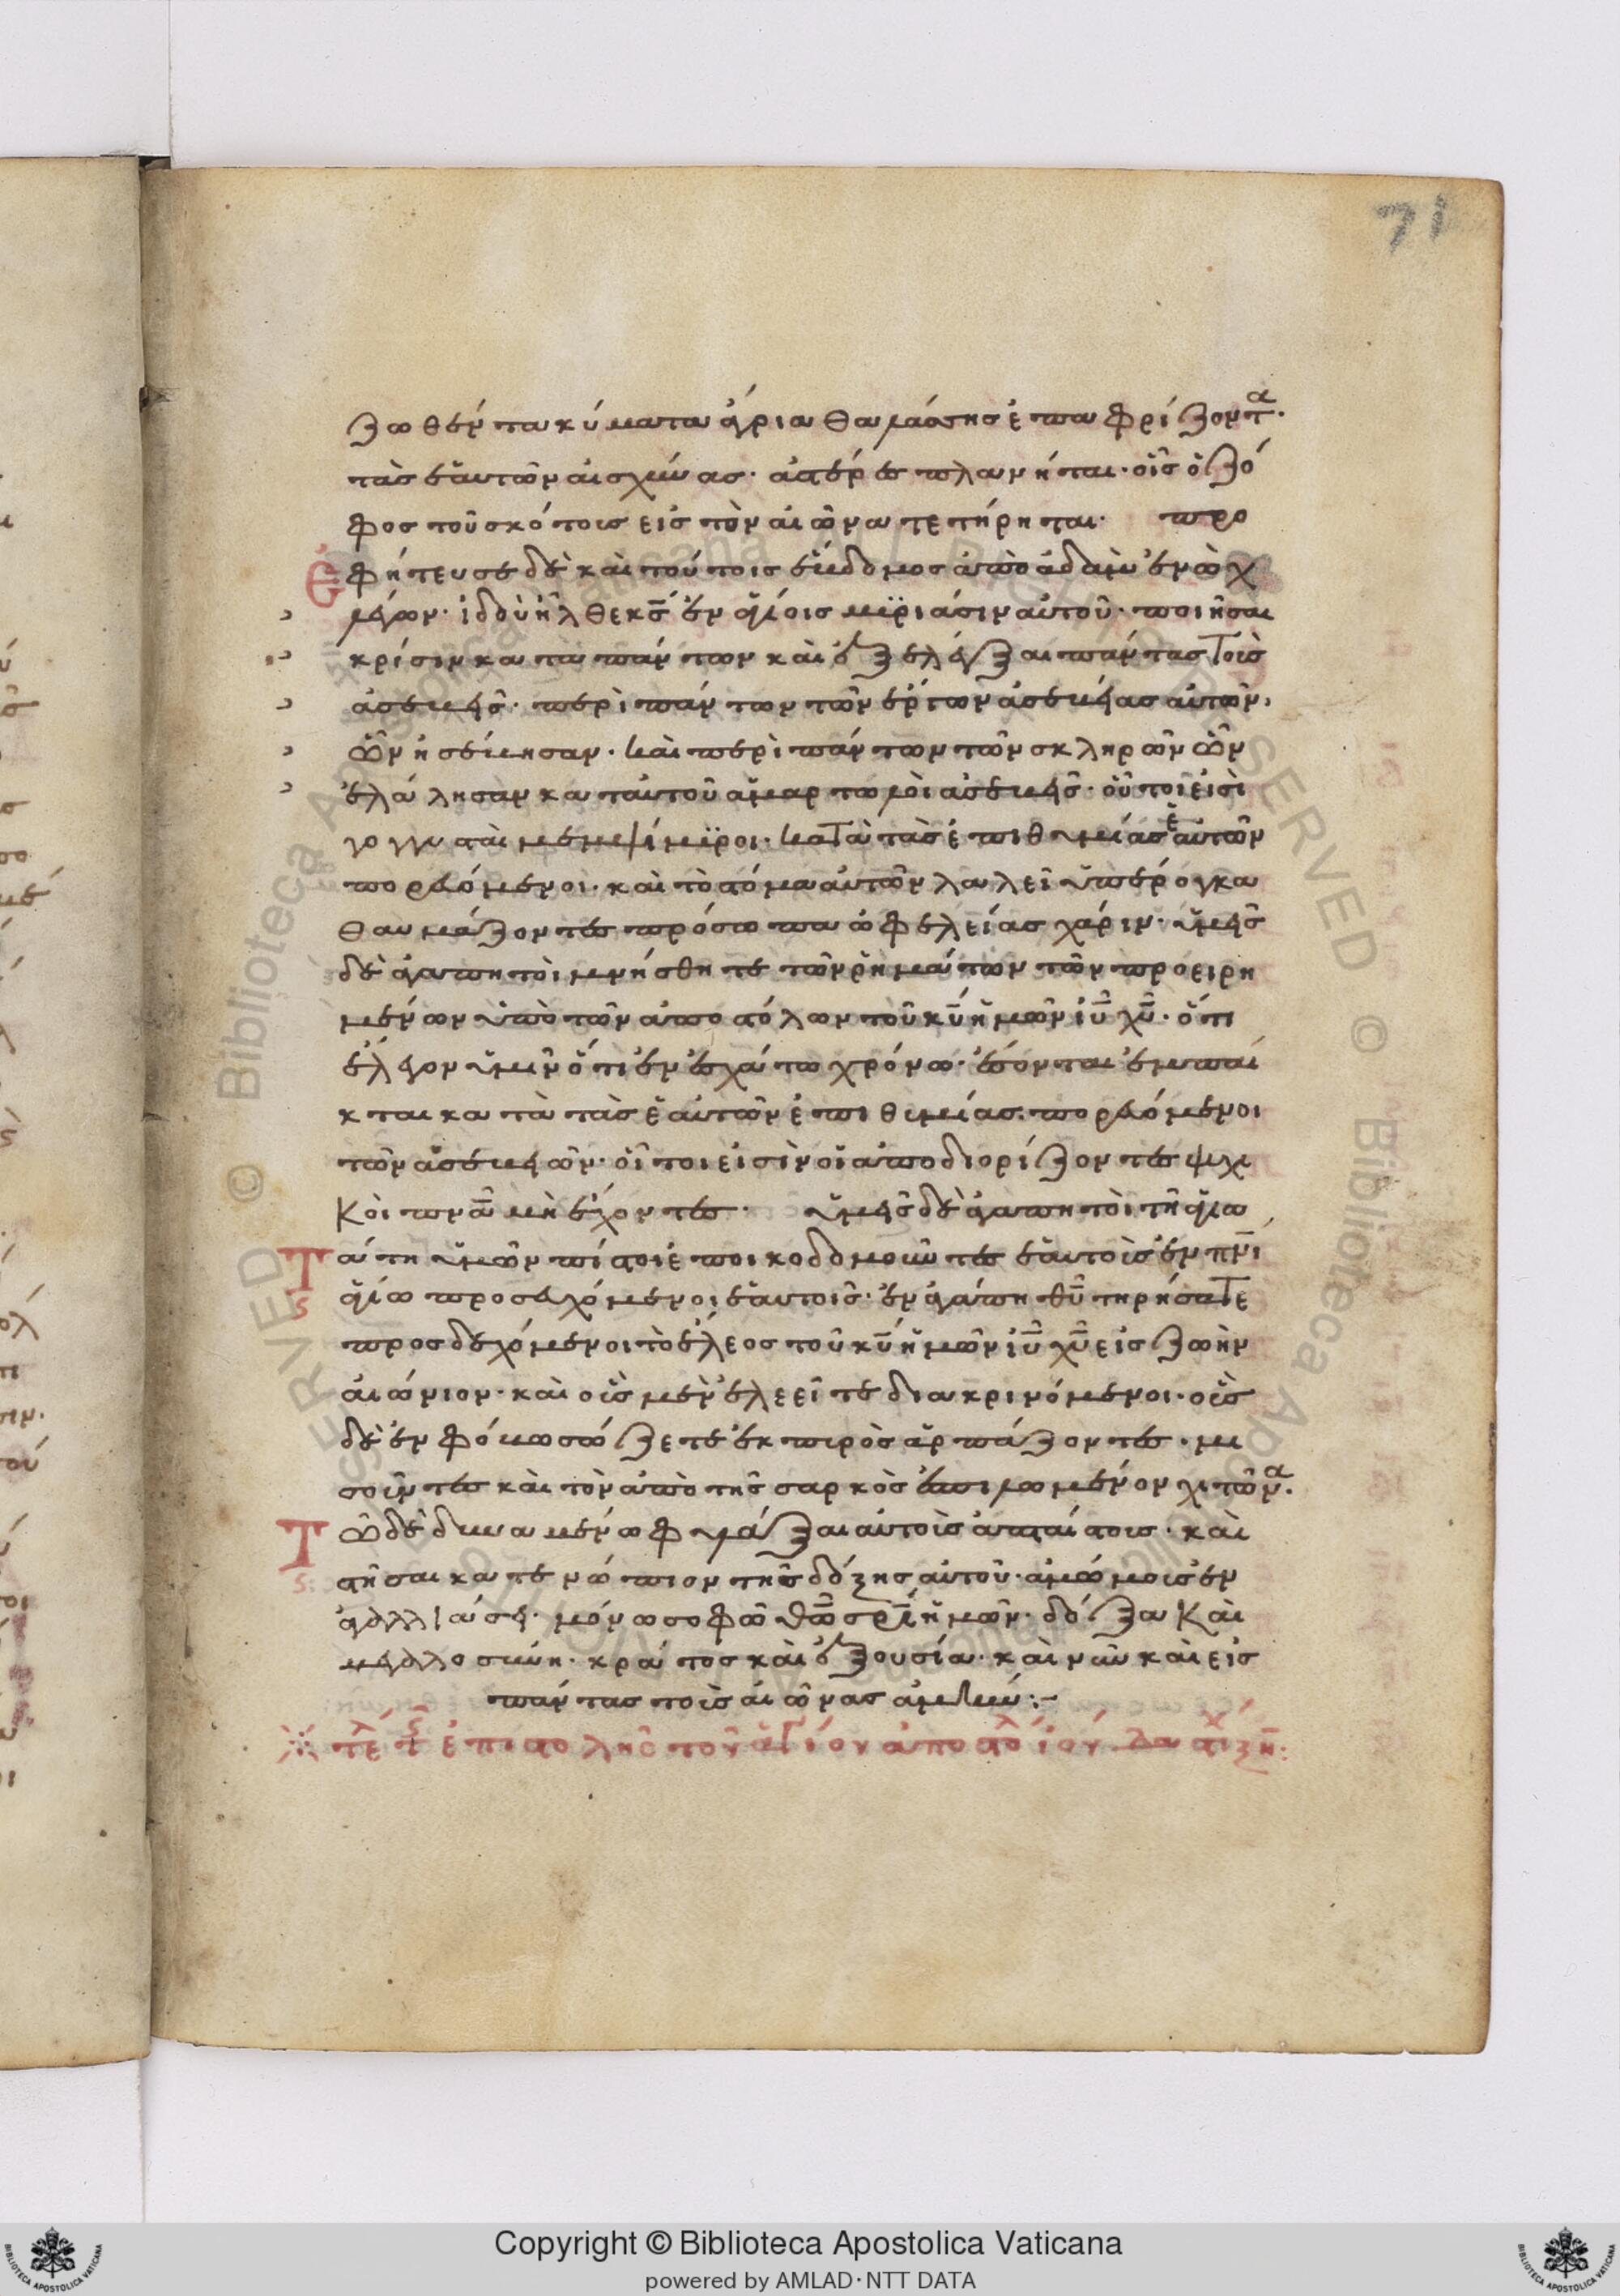 71
ζωθέντα κύματα ἄγρια θαλάσσης ἐπαφρίζοντα·
τὰς ἑαυτῶν αἰσχύνας· ἀστέρες πλανῆται· οἷς ὁ ζό
φος τοῦ σκότους εἰς τὸν αἰῶνα τετήρηται· προ
φήτευσε δὲ καὶ τούτοις ἕβδομος ἀπὸ ἀδὰμ ἐνὼχ
λέγων· ἰδοὺ ἦλθε κς ἐν ἁγίοις μυριάσιν αὐτοῦ· ποιῆσαι
κρίσιν κατὰ πάντων καὶ ἐξελέγξαι πάντας τοὺς
ἀσεβεῖς· περὶ πάντων τῶν ἔργων ἀσεβείας αὐτῶν,
ὧν ἠσέβησαν· καὶ περὶ πάντων τῶν σκληρῶν ὧν
ἐλάλησαν κατ αὐτοῦ ἁμαρτωλοὶ ἀσεβεῖς· οὗτοι εἰσὶ
γογγυσταὶ μεμψίμυροι· κατὰ τὰς ἐπιθυμίας ἑαυτῶν
πορευόμενοι· καὶ τὸ στόμα αὐτῶν λαλεῖ ὑπέρογκα
θαυμάζοντες πρόσωπα ὠφελείας χάριν· ὑμεῖς
δὲ ἀγαπητοὶ μνήσθητε τῶν ῥημάτων τῶν προειρη
μένων ὑπὸ τῶν ἀποστόλων τοῦ κυ ἡμῶν ιυ χυ· ὅτι
ἔλεγον ὑμῖν ὅτι ἐν ἐσχάτω χρόνω· ἔσονται ἐμπαί
κται κατὰ τὰς ἑαυτῶν ἐπιθυμίας· πορευόμενοι
τῶν ἀσεβειῶν· οὗτοι εἰσὶν οἱ ἀποδιορίζοντες ψυχι
κοὶ πνα μὴ ἔχοντες· ὑμεῖς δὲ ἀγαπητοὶ τῇ ἁγιω
τάτη ὑμῶν πίστει ἐποικοδομοῦντες ἑαυτοὺς ἐν πνι
ἁγίω προσευχόμενοι ἑαυτοῖς· ἐν ἀγάπη θυ τηρήσατε
προσδεχόμενοι τὸ ἔλεος τοῦ κυ ἡμῶν ιυ χυ εἰς ζωὴν
αἰώνιον· καὶ οὓς μὲν ἐλεεῖτε διακρινόμενοι· οὓς
δὲ ἐν φόβω σώζετε ἐκ πυρὸς ἁρπάζοντες· μι
σοῦντες καὶ τὸν ἀπὸ τῆς σαρκὸς ἐσπιλωμένον χιτῶνα·
Τῶ δὲ δυναμένω φυλάξαι αὐτοὺς ἀπταίστους· καὶ
στῆσαι κατενώπιον τῆς δόξης αὐτοῦ· ἀμώμους ἐν
ἀγαλλιάσει· μόνω σοφῶ θω σρι ἡμῶν· δόξα καὶ
μεγαλοσύνη· κράτος καὶ ἐξουσία· καὶ νῦν καὶ εἰς
πάντας τοὺς αἰῶνας ἀμήν:-